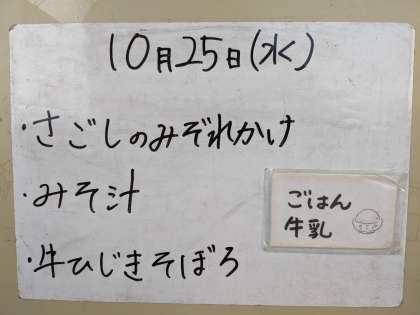 10月25日(水)
・さごしのみぞれかけ
・みそ汁
・牛ひじきそぼろ
ごはん
牛乳